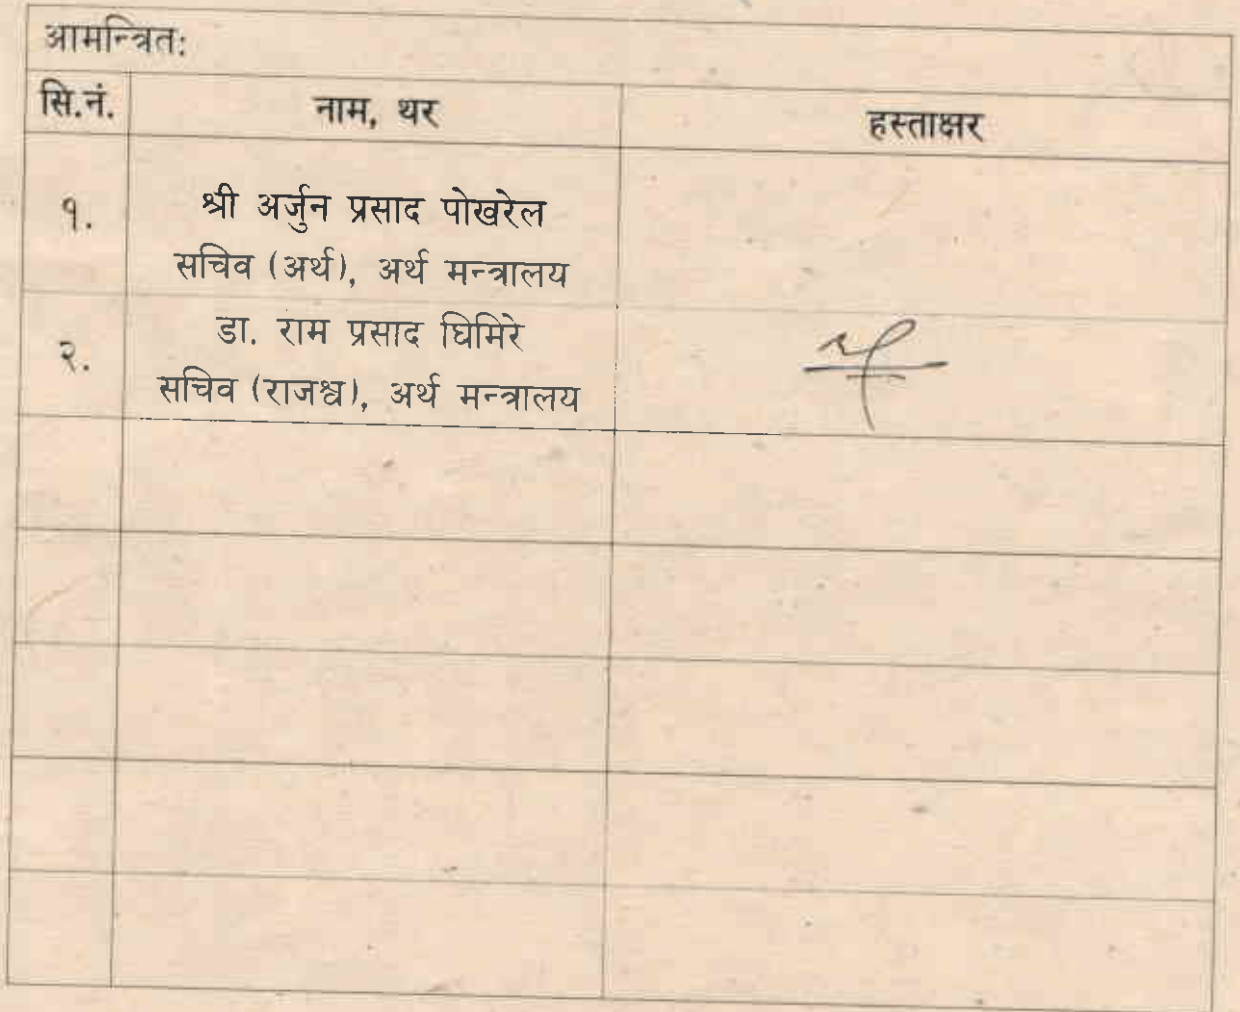 आमन्त्रित:
सि.नं. नाम, थर हस्ताक्षर
१. श्री अर्जुन प्रसाद पोखरेल
सचिव (अर्थ), अर्थ मन्त्रालय
२. डा. राम प्रसाद घिमिरे
सचिव (राजश्व), अर्थ मन्त्रालय